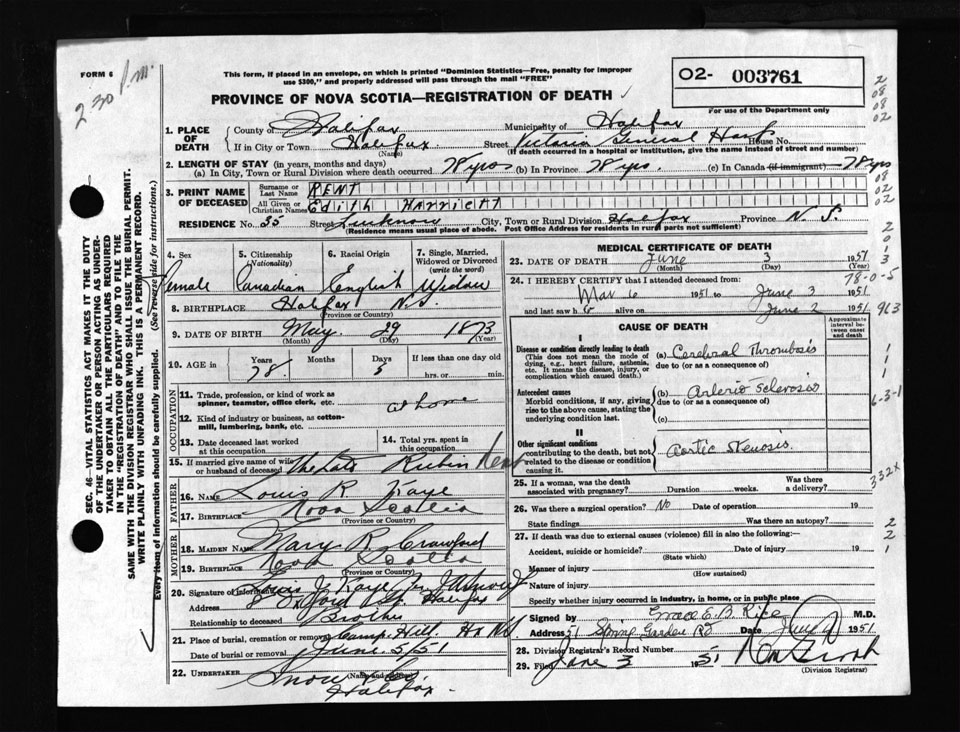 FORM 6
2 30 p.m.
This form, if placed in an envelope, on which is printed "Dominion Statistics—Free, penalty for improper
use $300," and properly addressed will pass through the mail "FREE"
O2- 003761
For use of the Department only
PROVINCE OF NOVA SCOTIA—REGISTRATION OF DEATH
1. PLACE OF DEATH
County of Halifax Municipality of Halifax
If in City or Town Halifax Street Victoria General Hosp House No.
(Name) (If death occurred in a hospital or institution, give the name instead of street and number)
2. LENGTH OF STAY (in years, months and days)
(a) In City, Town or Rural Division where death occurred 78 yrs (b) In Province 78 yrs. (c) In Canada (if immigrant) 78 yrs
3. PRINT NAME OF DECEASED
Surname or Last Name KENT
All Given or Christian Names Edith HARRIETT
RESIDENCE No. 35 Street Lucknow City, Town or Rural Division Halifax Province N.S.
(Residence means usual place of abode. Post Office Address for residents in rural parts not sufficient)
4. Sex Female
5. Citizenship (Nationality) Canadian
6. Racial Origin English
7. Single, Married, Widowed or Divorced (write the word) Widow
8. BIRTHPLACE Halifax N.S.
(Province or Country)
9. DATE OF BIRTH May 29 1873
(Month) (Day) (Year)
10. AGE in Years 78 Months Days 5 If less than one day old hrs. or min.
OCCUPATION
11. Trade, profession, or kind of work as spinner, teamster, office clerk, etc. at home
12. Kind of industry or business, as cotton-mill, lumbering, bank, etc.
13. Date deceased last worked at this occupation
14. Total yrs. spent in this occupation
15. If married give name of wife or husband of deceased The Late Rubin Kent
FATHER
16. NAME Louis R. Kaye
17. BIRTHPLACE Nova Scotia
(Province or Country)
MOTHER
18. MAIDEN NAME Mary R. Crawford
19. BIRTHPLACE Nova Scotia
(Province or Country)
20. Signature of informant Louis J. Kaye Per
Address Oxford St. Halifax
Relationship to deceased Brother
21. Place of burial, cremation or removal Camp Hill.
Date of burial or removal June 5/51
22. UNDERTAKER Snow
(Name and address)
Halifax.
MEDICAL CERTIFICATE OF DEATH
23. DATE OF DEATH June 3 1951
(Month) (Day) (Year)
24. I HEREBY CERTIFY that I attended deceased from:
Mar 6 1951 to June 3 1951
and last saw h alive on June 2 1951
CAUSE OF DEATH
Approximate interval between onset and death
I
Disease or condition directly leading to death
(This does not mean the mode of dying, e.g., heart failure, asthenia, etc. It means the disease, injury, or complication which caused death.)
(a) Cerebral Thrombosis
due to (or as a consequence of)
Antecedent causes
Morbid conditions, if any, giving rise to the above cause, stating the underlying condition last.
(b) Arterio Sclerosis
due to (or as a consequence of)
(c)
II
Other significant conditions
contributing to the death, but not related to the disease or condition causing it.
Aortic Stenosis.
25. If a woman, was the death associated with pregnancy? Duration weeks. Was there a delivery?
26. Was there a surgical operation? No Date of operation 19
State findings Was there an autopsy?
27. If death was due to external causes (violence) fill in also the following:—
Accident, suicide or homicide? Date of injury 19
(State which)
Manner of injury
(How sustained)
Nature of injury
Specify whether injury occurred in industry, in home, or in public place
Signed by Grace E. B. Rice M.D.
Address 51 Spring Garden Rd Date June 1951
28. Division Registrar's Record Number
29. Filed June 3 1951
(Division Registrar)
SEC. 46—VITAL STATISTICS ACT MAKES IT THE DUTY
OF THE UNDERTAKER OR PERSON ACTING AS UNDER-
TAKER TO OBTAIN ALL THE PARTICULARS REQUIRED
IN THE "REGISTRATION OF DEATH" AND TO FILE THE
SAME WITH THE DIVISION REGISTRAR WHO SHALL ISSUE THE BURIAL PERMIT.
WRITE PLAINLY WITH UNFADING INK. THIS IS A PERMANENT RECORD.
Every item of information should be carefully supplied. (See reverse side for instructions.)
2
08
08
02
08
02
02
2
0
1
3
78-0-5
963
1
1
1
6-3-1
332x
2
2
1